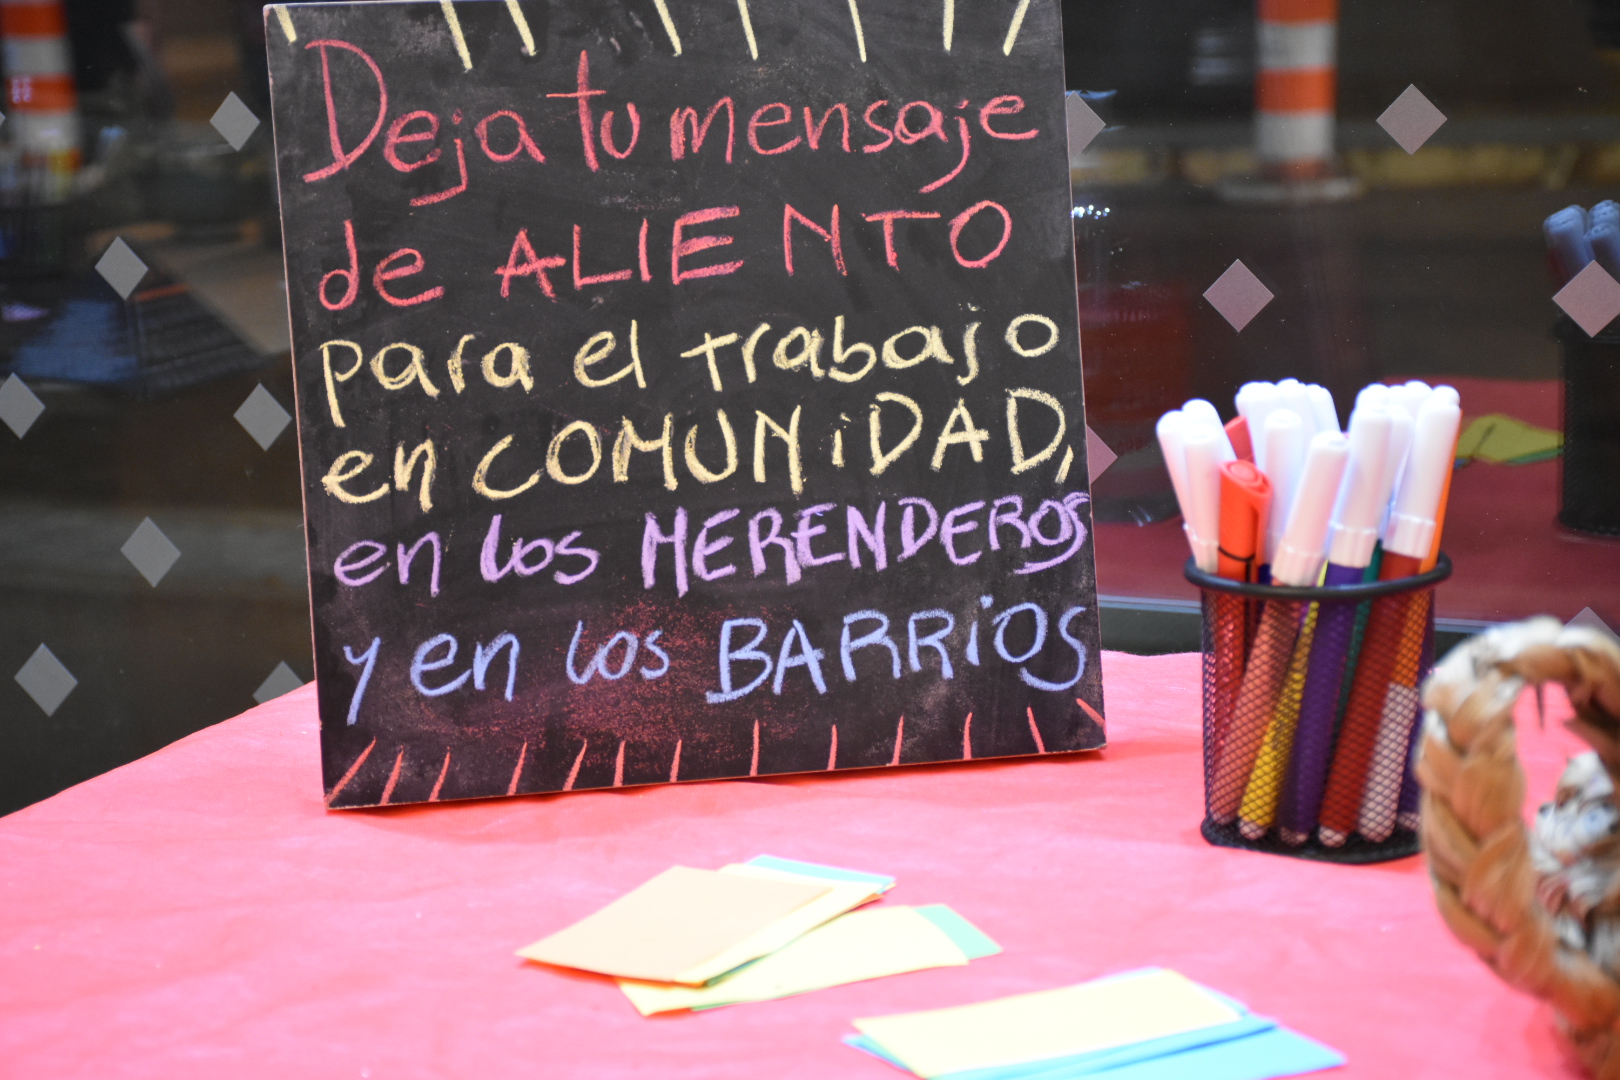 Deja tu mensaje
de ALIENTO
para el trabajo
en COMUNiDAD,
en los MERENDEROS
y en los BARRiOS